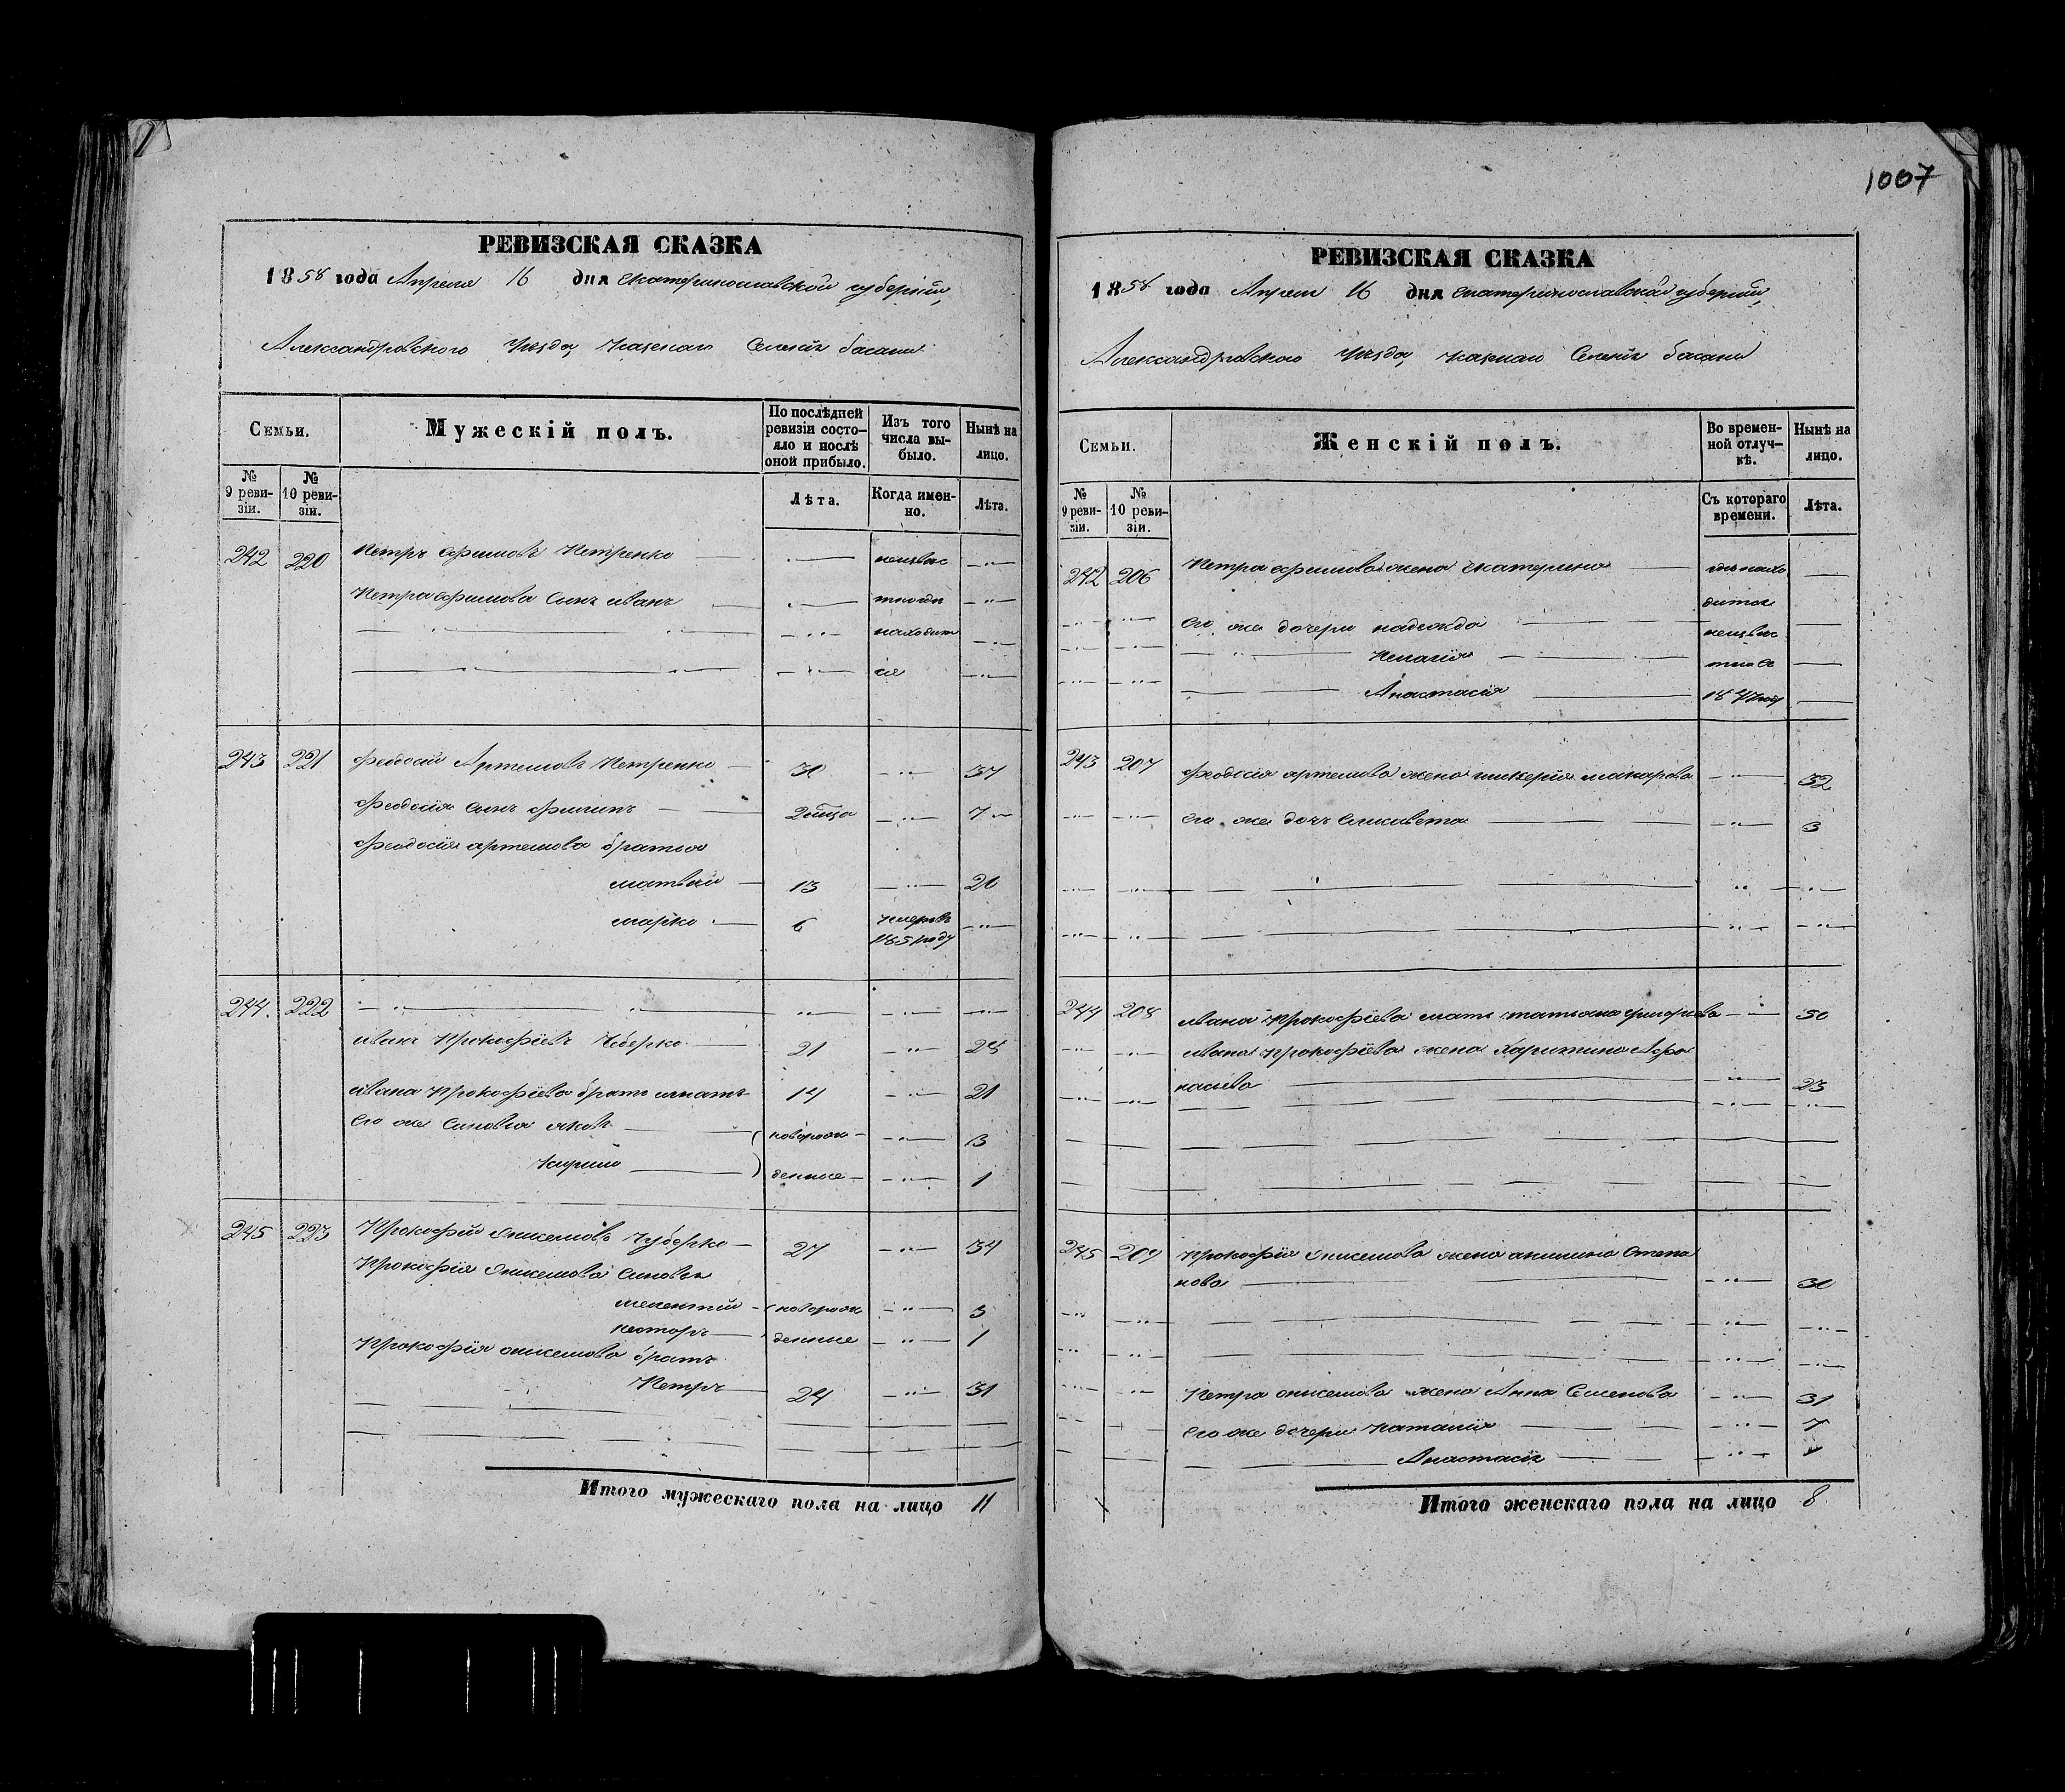 1007
РЕВИЗСКАЯ СКАЗКА
1858 года Апреля 16 дня Екатеринославской губернии,
Александровского Уезда, Казенаго Селенія басани
Семьи.
Мужескій полъ.
По послѣдней ревизіи состояло и послѣ оной прибыло.
Изъ того числа выбыло.
Нынѣ на лицо.
№ 9 ревизіи.
№ 10 ревизіи.
Лѣта.
Когда именно.
Лѣта.
242 220 Петръ Ефимовъ Петренко неизвес
Петра Ефимова Сынъ иванъ тногди
находит
ся
243 221 Феодосій Артемовъ Петренко 30 37
Феодосія Сынъ Филипъ 7
Феодосія артемова братья
матвѣй 13 20
марко 6 Умеръвъ
1851 году
244. 222
иванъ Прокофіевъ 21 28
ивана Прокофіева братъ игнатъ 14 21
Его же Сыновья яковъ новорож 3
Кирило денные 1
245 223 Прокофій Онисимовъ Чуберко 27 34
Прокофія Онисимова Сыновья
мелентій новорож 3
несторъ денные 1
Прокофія онисимова братъ
Петръ 24 31
Итого мужескаго пола на лицо 11
РЕВИЗСКАЯ СКАЗКА
1858 года Апреля 16 дня Екатеринославской губерніи,
Александровского Уезда, казенаго Селенія басани
Семьи.
Женскій полъ.
Во временной отлучкѣ.
Нынѣ на лицо.
№ 9 ревизіи.
№ 10 ревизіи.
Съ котораго времени.
Лѣта.
242 206 Петра Ефимова жена Екатерина где нахо
дится
Его же дочери надежда неизвес
Пелагія тно съ
Анастасія 1847 году
243 207 Феодосія артемова жена гликерія макарова 32
Его же дочь Елисавета 3
244 208 ивана Прокофіева мать татьяна григорьева 50
ивана Прокофіева жена Харитина Афо
насьева 23
245 209 Прокофія Онисимова жена акилина Степа
нова 30
Петра онисимова жена Анна Семенова 31
Его же дочери Наталія 7
Анастасія 1
Итого женскаго пола на лицо 8